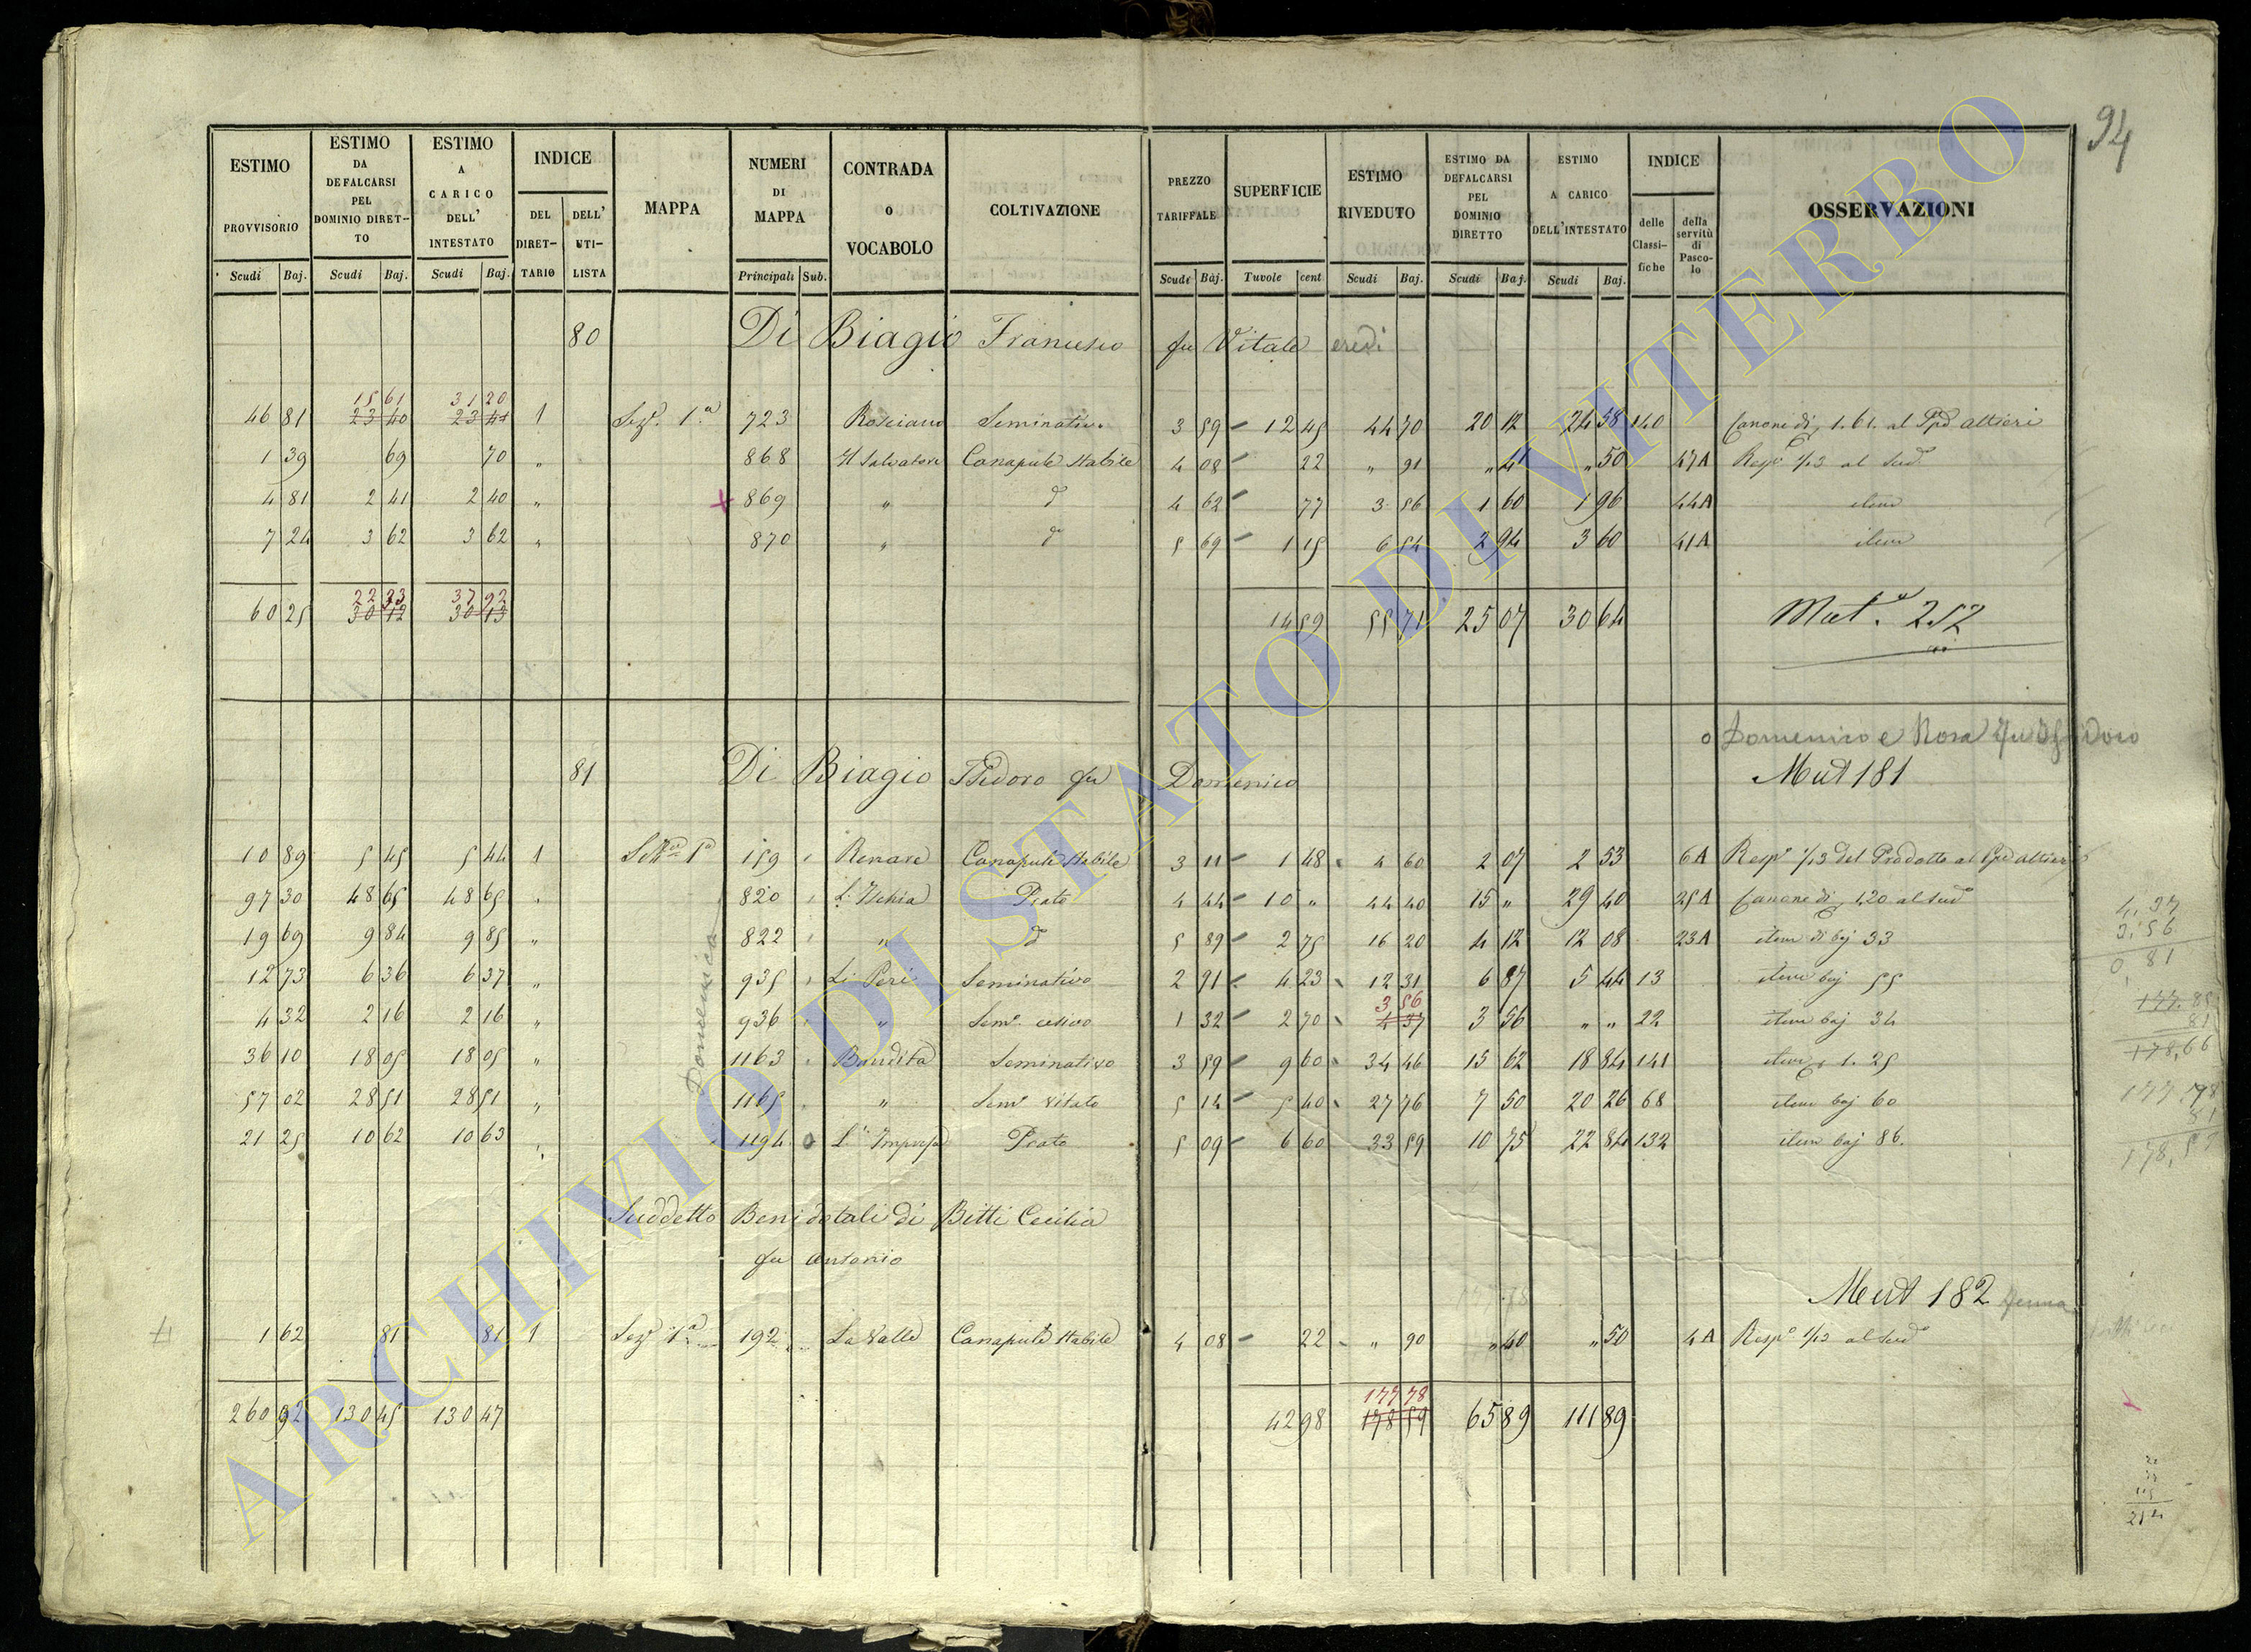 94
ESTIMO PROVVISORIO | ESTIMO DA DEFALCARSI PEL DOMINIO DIRET-TO | ESTIMO A CARICO DELL' INTESTATO | INDICE | MAPPA | NUMERI DI MAPPA | CONTRADA o VOCABOLO | COLTIVAZIONE | PREZZO TARIFFALE | SUPERFICIE | ESTIMO RIVEDUTO | ESTIMO DA DEFALCARSI PEL DOMINIO DIRETTO | ESTIMO A CARICO DELL'INTESTATO | INDICE | OSSERVAZIONI
DEL DIRET-TARIO | DELL' UTI-LISTA | delle Classi-fiche | della servitù di Pasco-lo
Scudi | Baj. | Scudi | Baj. | Scudi | Baj. | Principali | Sub. | Scudi | Baj. | Tavole | cent | Scudi | Baj. | Scudi | Baj. | Scudi | Baj.
80 Di Biagio Francesco fu Vitale eredi
15 61 | 31 20
46 81 | 23 40 | 23 41 | 1 | Sez.e 1.a | 723 | Rosciano | Seminativo | 3 59 | 12 45 | 44 70 | 20 12 | 24 58 | 140 | Canone di 1.61. al Ppe Altieri
1 39 | 69 | 70 | " | 868 | Il Salvatore | Canapule Stabile | 4 08 | 22 | " 91 | " 41 | " 50 | 47A | Resp. 1/13 al Sud.o
4 81 | 2 41 | 2 40 | " | 869 | " | d.o | 4 62 | 77 | 3 56 | 1 60 | 1 96 | 44A | item
7 24 | 3 62 | 3 62 | " | 870 | " | d.o | 5 69 | 1 15 | 6 54 | 2 94 | 3 60 | 41A | item
22 33 | 37 92
60 25 | 30 12 | 30 13 | 14 59 | 55 71 | 25 07 | 30 64 | Mut.a 252
o Domenico e Rosa fu Isidoro
81 Di Biagio Isidoro fu Domenico | Mut 181
10 89 | 5 45 | 5 44 | 1 | Sez.e 1a | 159 | Renare | Canapule Stabile | 3 11 | 1 48 | 4 60 | 2 07 | 2 53 | 6A | Resp. 1/13 del Prodotto al Ppe Altieri
97 30 | 48 65 | 48 65 | " | 820 | L'Ischia | Prato | 4 44 | 10 " | 44 40 | 15 " | 29 40 | 25A | Canone di 1.20 al Sud.o
19 69 | 9 84 | 9 85 | " | 822 | " | d.o | 5 89 | 2 75 | 16 20 | 4 12 | 12 08 | 23A | item di baj 33
12 73 | 6 36 | 6 37 | " | 935 | Li Peri | Seminativo | 2 91 | 4 23 | 12 31 | 6 87 | 5 44 | 13 | item baj 55
3 56
4 32 | 2 16 | 2 16 | " | 936 | " | Sem.o | 1 32 | 2 70 | 4 37 | 3 56 | " " | 22 | item baj 34
36 10 | 18 05 | 18 05 | " | 1163 | Bandita | Seminativo | 3 59 | 9 60 | 34 46 | 15 62 | 18 84 | 141 | item 1.25
57 02 | 28 51 | 28 51 | " | 1165 | " | Sem.o Vitato | 5 14 | 5 40 | 27 76 | 7 50 | 20 26 | 68 | item baj 60
21 25 | 10 62 | 10 63 | " | 1194 | Prato | 5 09 | 6 60 | 33 59 | 10 75 | 22 84 | 132 | item baj 86.
Domenica
4,37
3,56
0,81
177.85
81
178,66
81
Suddetto Beni dotali di Bitti Cecilia
fu Antonio
Mut 182
1 62 | 81 | 81 | 1 | Sez.e 1.a | 192 | La Valle | Canapule Stabile | 4 08 | 22 | " 90 | " 40 | " 50 | 4A | Resp.o 1/13 al Sud.o
177 78
260 92 | 130 45 | 130 47 | 42 98 | 178 59 | 65 89 | 111 89
ARCHIVIO DI STATO DI VITERBO